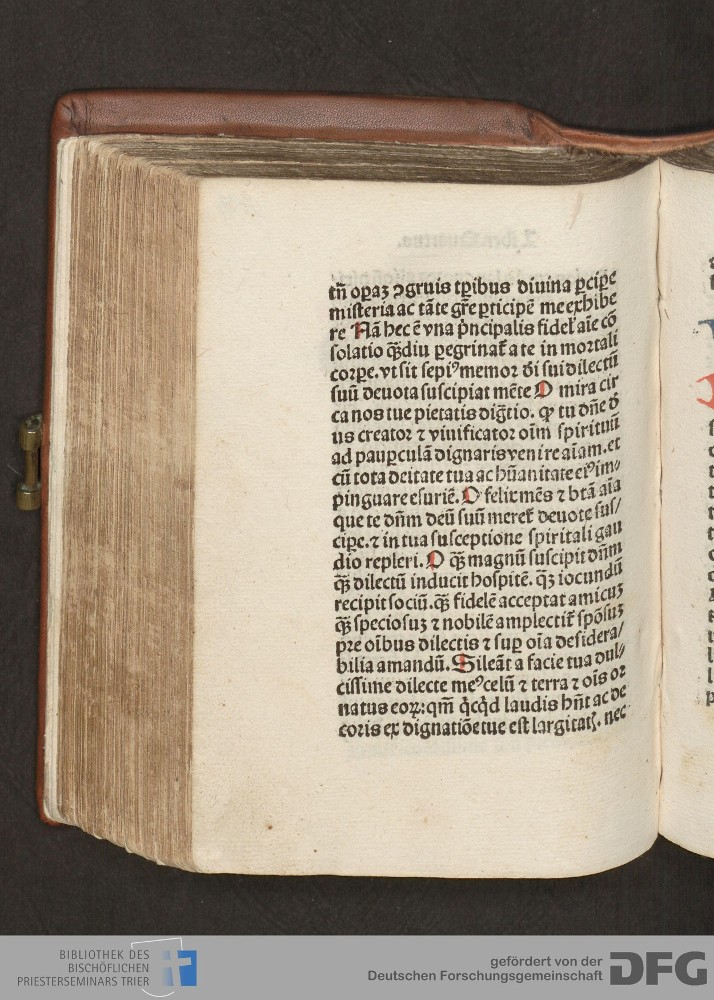 tñ oꝑaʒ ꝯgruis tꝑibus diuina ꝑcipe
misteria ac tãte gr̃e ꝑticipē me exhibe
re Nã hec ē vna pͥncipalis fidel̕ aĩe cõ
solatio q̃ȝdiu ꝑegrinat̃ a te in mortali
corꝑe. vt sit sepiꝰ memor di̕ sui dilectũ
suũ deuota suscipiat mẽte O mira cir
ca nos tue pietatis dig̃tio. ꝙ tu dñe d̕e
us creator ⁊ viuificator oĩm spirituũ
ad pauꝑculã dignaris venire aĩam. et
cũ tota deitate tua ac hũanitate eiꝰ im⸗
pinguare esuriẽ. O felix mẽs ⁊ btã aĩa
que te dñm deũ suũ meret̃ deuote sus/
ciꝑe. ⁊ in tua susceptione spiritali gau
dio repleri. O q̃ȝ magnũ suscipit dñm
q̃ȝ dilectũ inducit hospitẽ. q̃ȝ iocundũ
recipit sociũ. q̃ȝ fidelẽ acceptat amicuʒ
q̃ȝ speciosuʒ ⁊ nobilẽ amplectit̃ spõsuʒ
pre oĩbus dilectis ⁊ suꝑ oĩa desidera/
bilia amandũ. Sileãt a facie tua dul⸗
cissime dilecte meꝰ celũ ⁊ terra ⁊ oĩs or
natus eoꝝ: qm̃ qͥcqͥd laudis hñt ac de
coris ex dignatiõe tue est largitatꝭ. nec
BIBLIOTHEK DES
BISCHÖFLICHEN
PRIESTERSEMINARS TRIER
gefördert von der
Deutschen Forschungsgemeinschaft
DFG